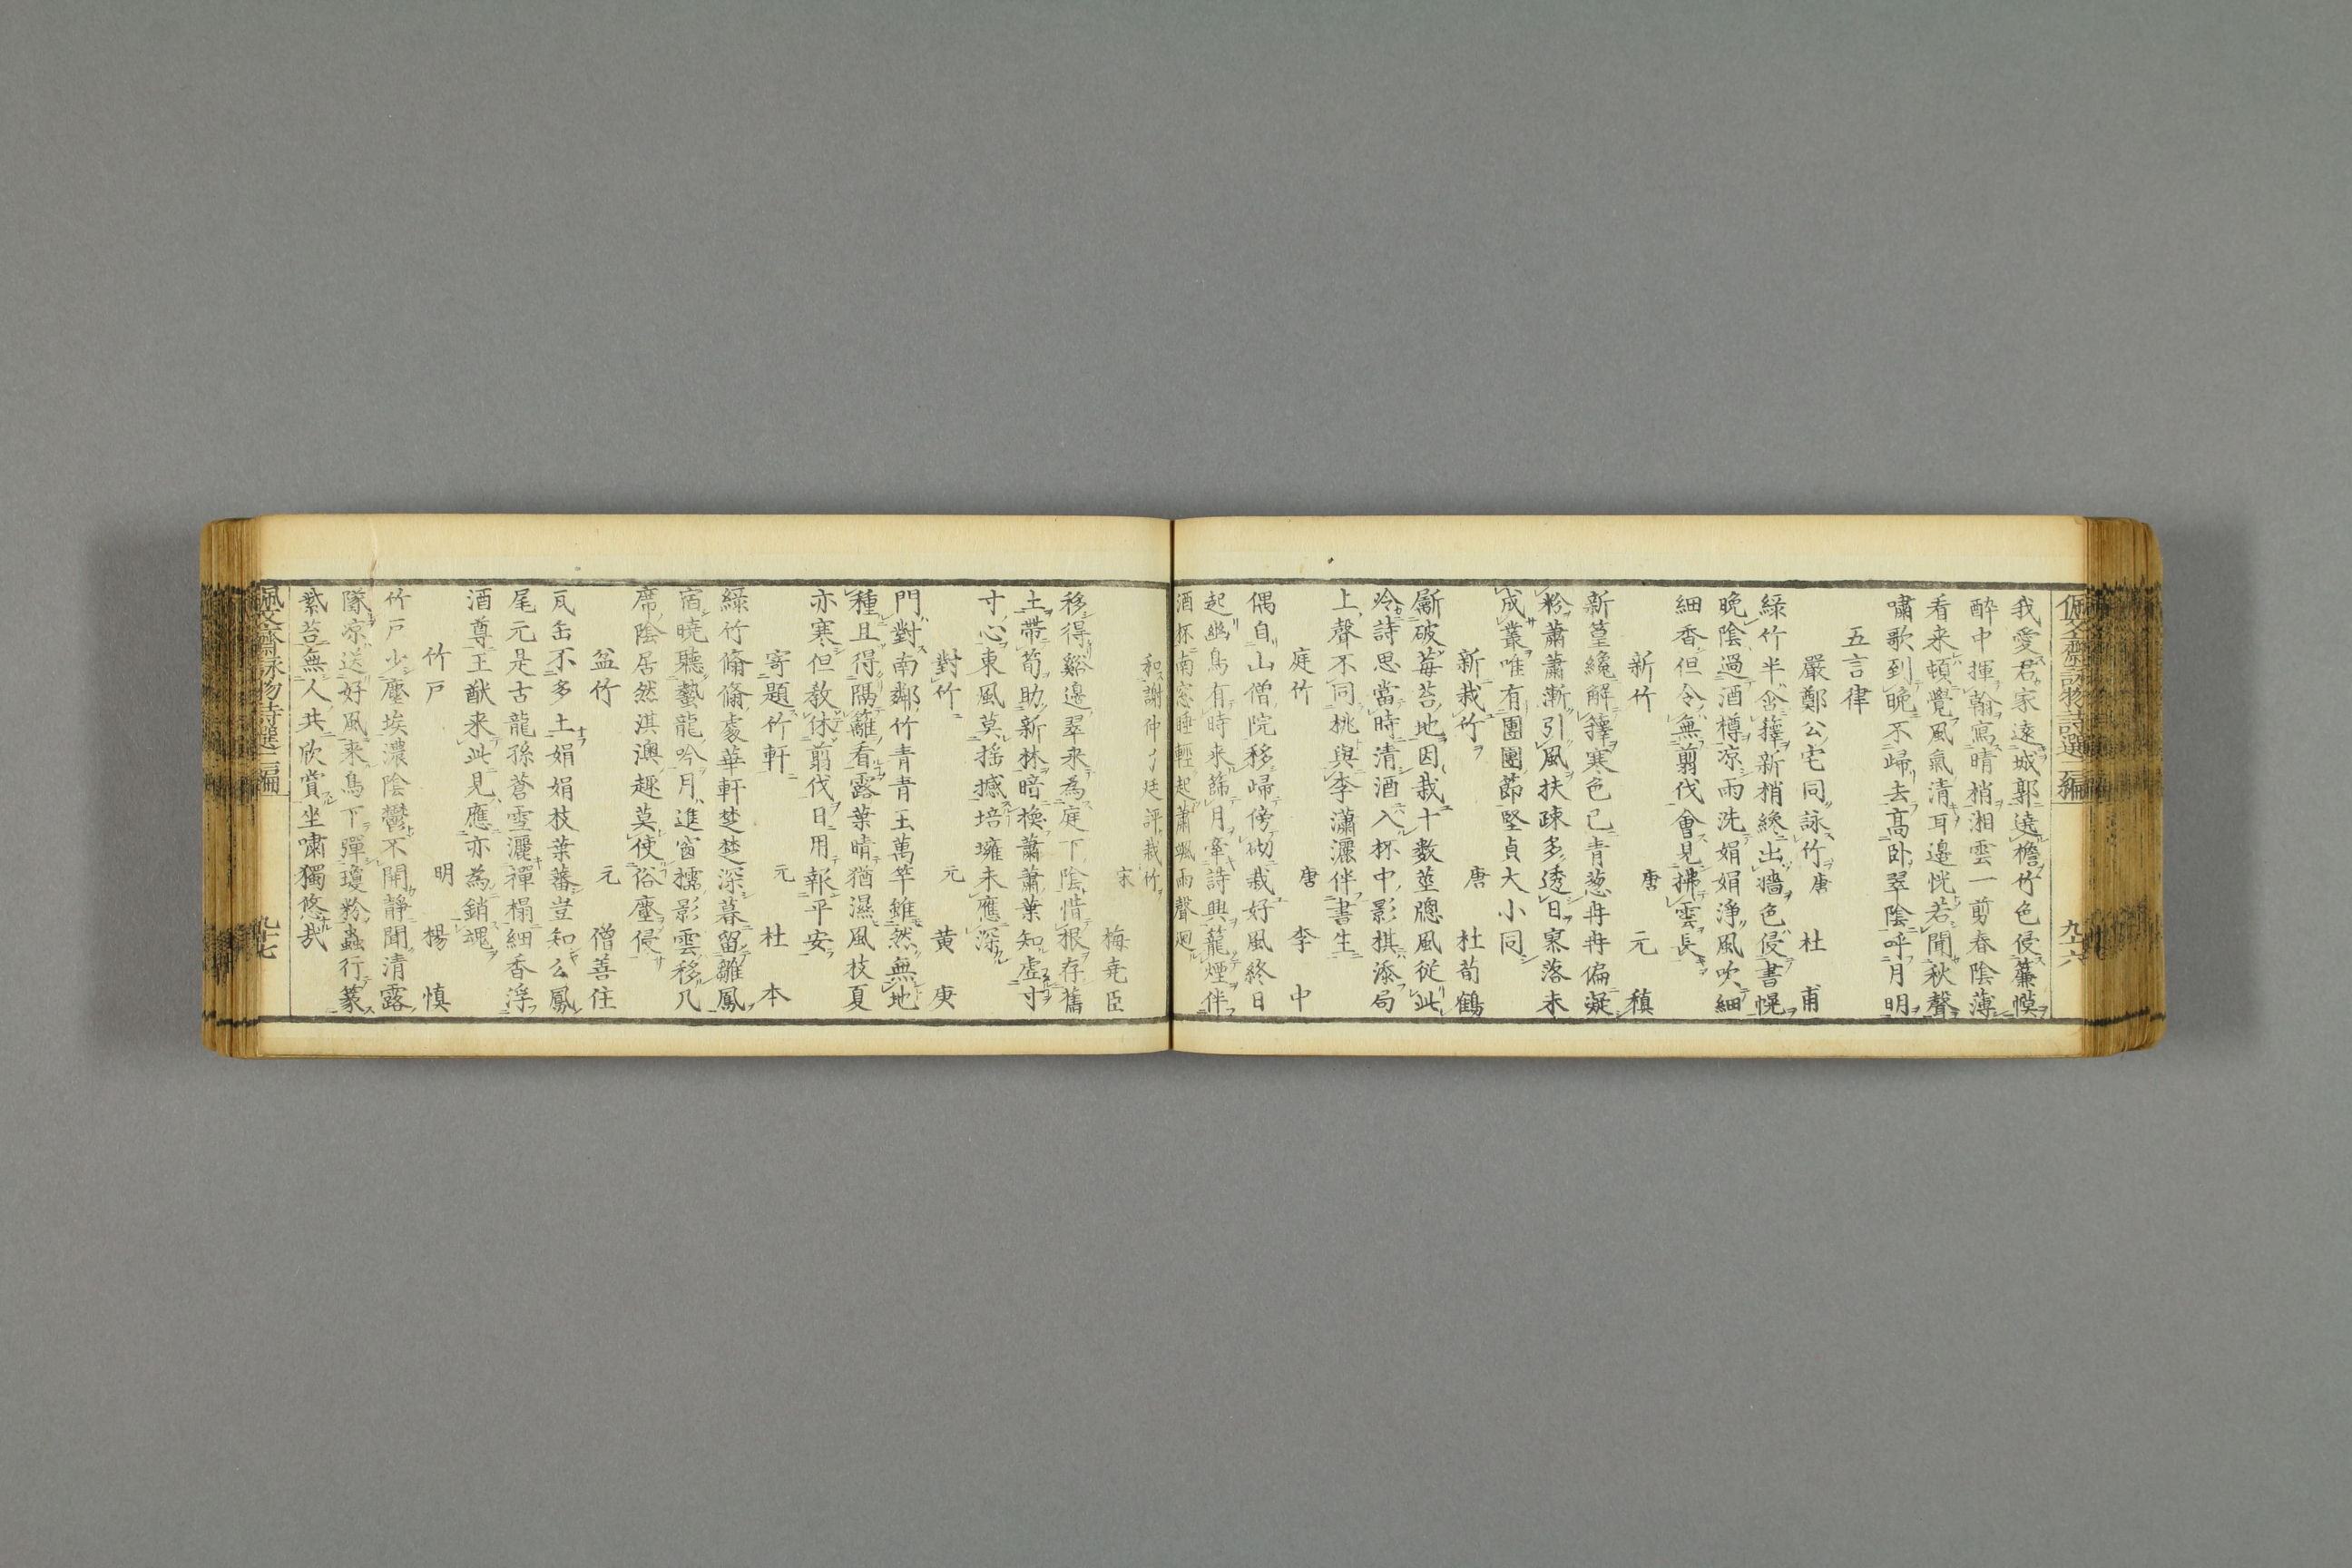 佩文齋詠物詩選二編
九十六
我愛君家遠城郭遶檐竹色侵簾幙
醉中揮翰寫晴梢湘雲一剪春陰薄
看来頓覺風氣清耳邉恍若聞秋聲
嘯歌到晩不歸去髙卧翠陰呼月明
五言律
嚴鄭公宅同詠竹 唐 杜甫
綠竹半含籜新梢纔出墻色侵書幌
晩陰過酒樽凉雨洗娟娟淨風吹細
細香但令無剪伐會見拂雲長
新竹 唐 元稹
新篁纔解籜寒色已青葱冉冉偏凝
粉蕭蕭漸引風扶疎多透日寥落未
成叢唯有團團節堅貞大小同
新栽竹 唐 杜荀鶴
斸破莓苔地因栽十数莖牕風従此
冷詩思當時清酒入杯中影棋添局
上聲不同桃與李瀟灑伴書生
庭竹 唐 李中
偶自山僧院移歸傍砌栽好風終日
起幽鳥有時来篩月牽詩興籠煙伴
酒杯南窓睡輕起蕭颯雨聲廻
和謝仲弓廷評栽竹
宋 梅尭臣
移得谿邉翠来為庭下陰惜根存舊
土帯筍助新林暗換蕭蕭葉知虚寸
寸心東風莫揺撼培壅未應深
對竹 元 黄庚
門對南鄰竹青青玉萬竿雖然無地
種且得隔籬看露葉晴猶濕風枝夏
亦寒但教休剪伐日用報平安
寄題竹軒 元 杜本
綠竹脩脩處華軒楚楚深暮留雛鳳
宿曉聽蟄龍吟月進窗櫺影雲移几
席陰居然淇澳趣莫使俗塵侵
盆竹 元 僧善住
瓦缶不多土娟娟枝葉蕃豈知公鳳
尾元是古龍孫蒼雪灑禪榻細香浮
酒尊王猷来此見應亦為銷魂
竹戸 明 楊慎
竹戸少塵埃濃陰鬱不開靜聞清露
墜凉送好風来鳥下彈瓊粉蟲行篆
紫苔無人共欣賞坐嘯獨悠哉
佩文齋詠物詩選二編
九十七